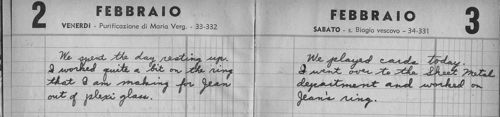 2
FEBBRAIO
VENERDI - Purificazione di Maria Verg. - 33-332
We spent the day resting up.
I worked quite a bit on the ring
that I am making for Jean
out of plexi glass.
FEBBRAIO
3
SABATO - s. Biagio vescovo - 34-331
We played cards today.
I went over to the Sheet Metal
department and worked on
Jean's ring.